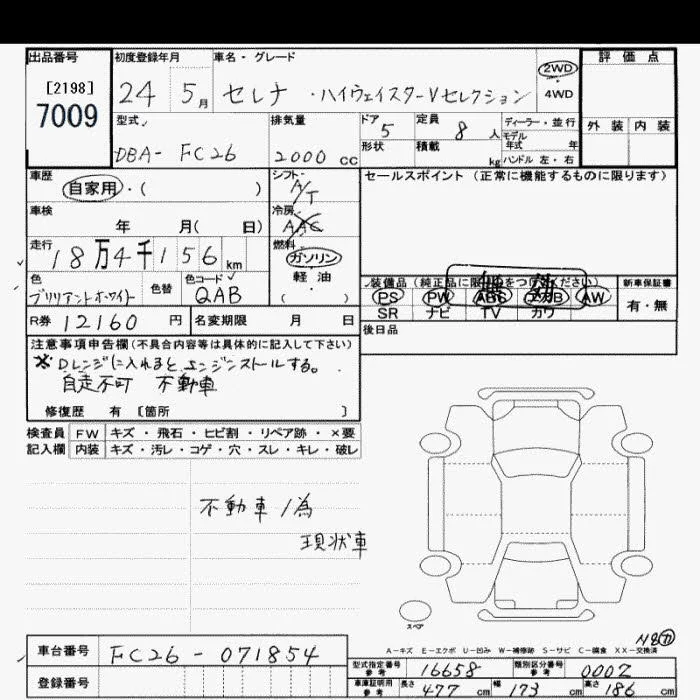 出品番号 初度登録年月 車名・グレード 評価点
[2198]
7009
24 5月 セレナ ・ハイウェイスターVセレクション 2WD ・ 4WD
外装 内装
型式 排気量 ドア 定員 ディーラー・並行
DBA- FC26 2000 CC 5 8 人 モデル年式 年
形状 積載 kg ハンドル 左・右
車歴 自家用・( ) シフト A/T セールスポイント(正常に機能するものに限ります)
車検 年 月( 日) 冷房 AAC
走行 18万4千156 km 燃料 ガソリン
軽・油
( )
色 ブリリアントホワイト 色替 色コード QAB
装備品(純正品に限 をつ ください) 新車保証書
PS PW ABS エアB AW 有・無
SR ナビ TV カワ
無効
R券 12160 円 名変期限 月 日 後日品
注意事項申告欄(不具合内容等は具体的に記入して下さい)
※Dレンジに入れるとエンジンストールする。
自走不可 不動車
修復歴 有 [箇所 ]
検査員 FW キズ・飛石・ヒビ割・リペア跡・×要
記入欄 内装 キズ・汚レ・コゲ・穴・スレ・キレ・破レ
不動車ノ為
現状車
スペア
A-キズ E-エクボ U-凹み W-補修跡 S-サビ C-腐食 XX-交換済
車台番号 FC26-071854
登録番号
型式指定番号 参考 16658 類別区分番号 参考 0002
車庫証明用 参考 長さ 477 cm 幅 173 cm 高さ 186 cm